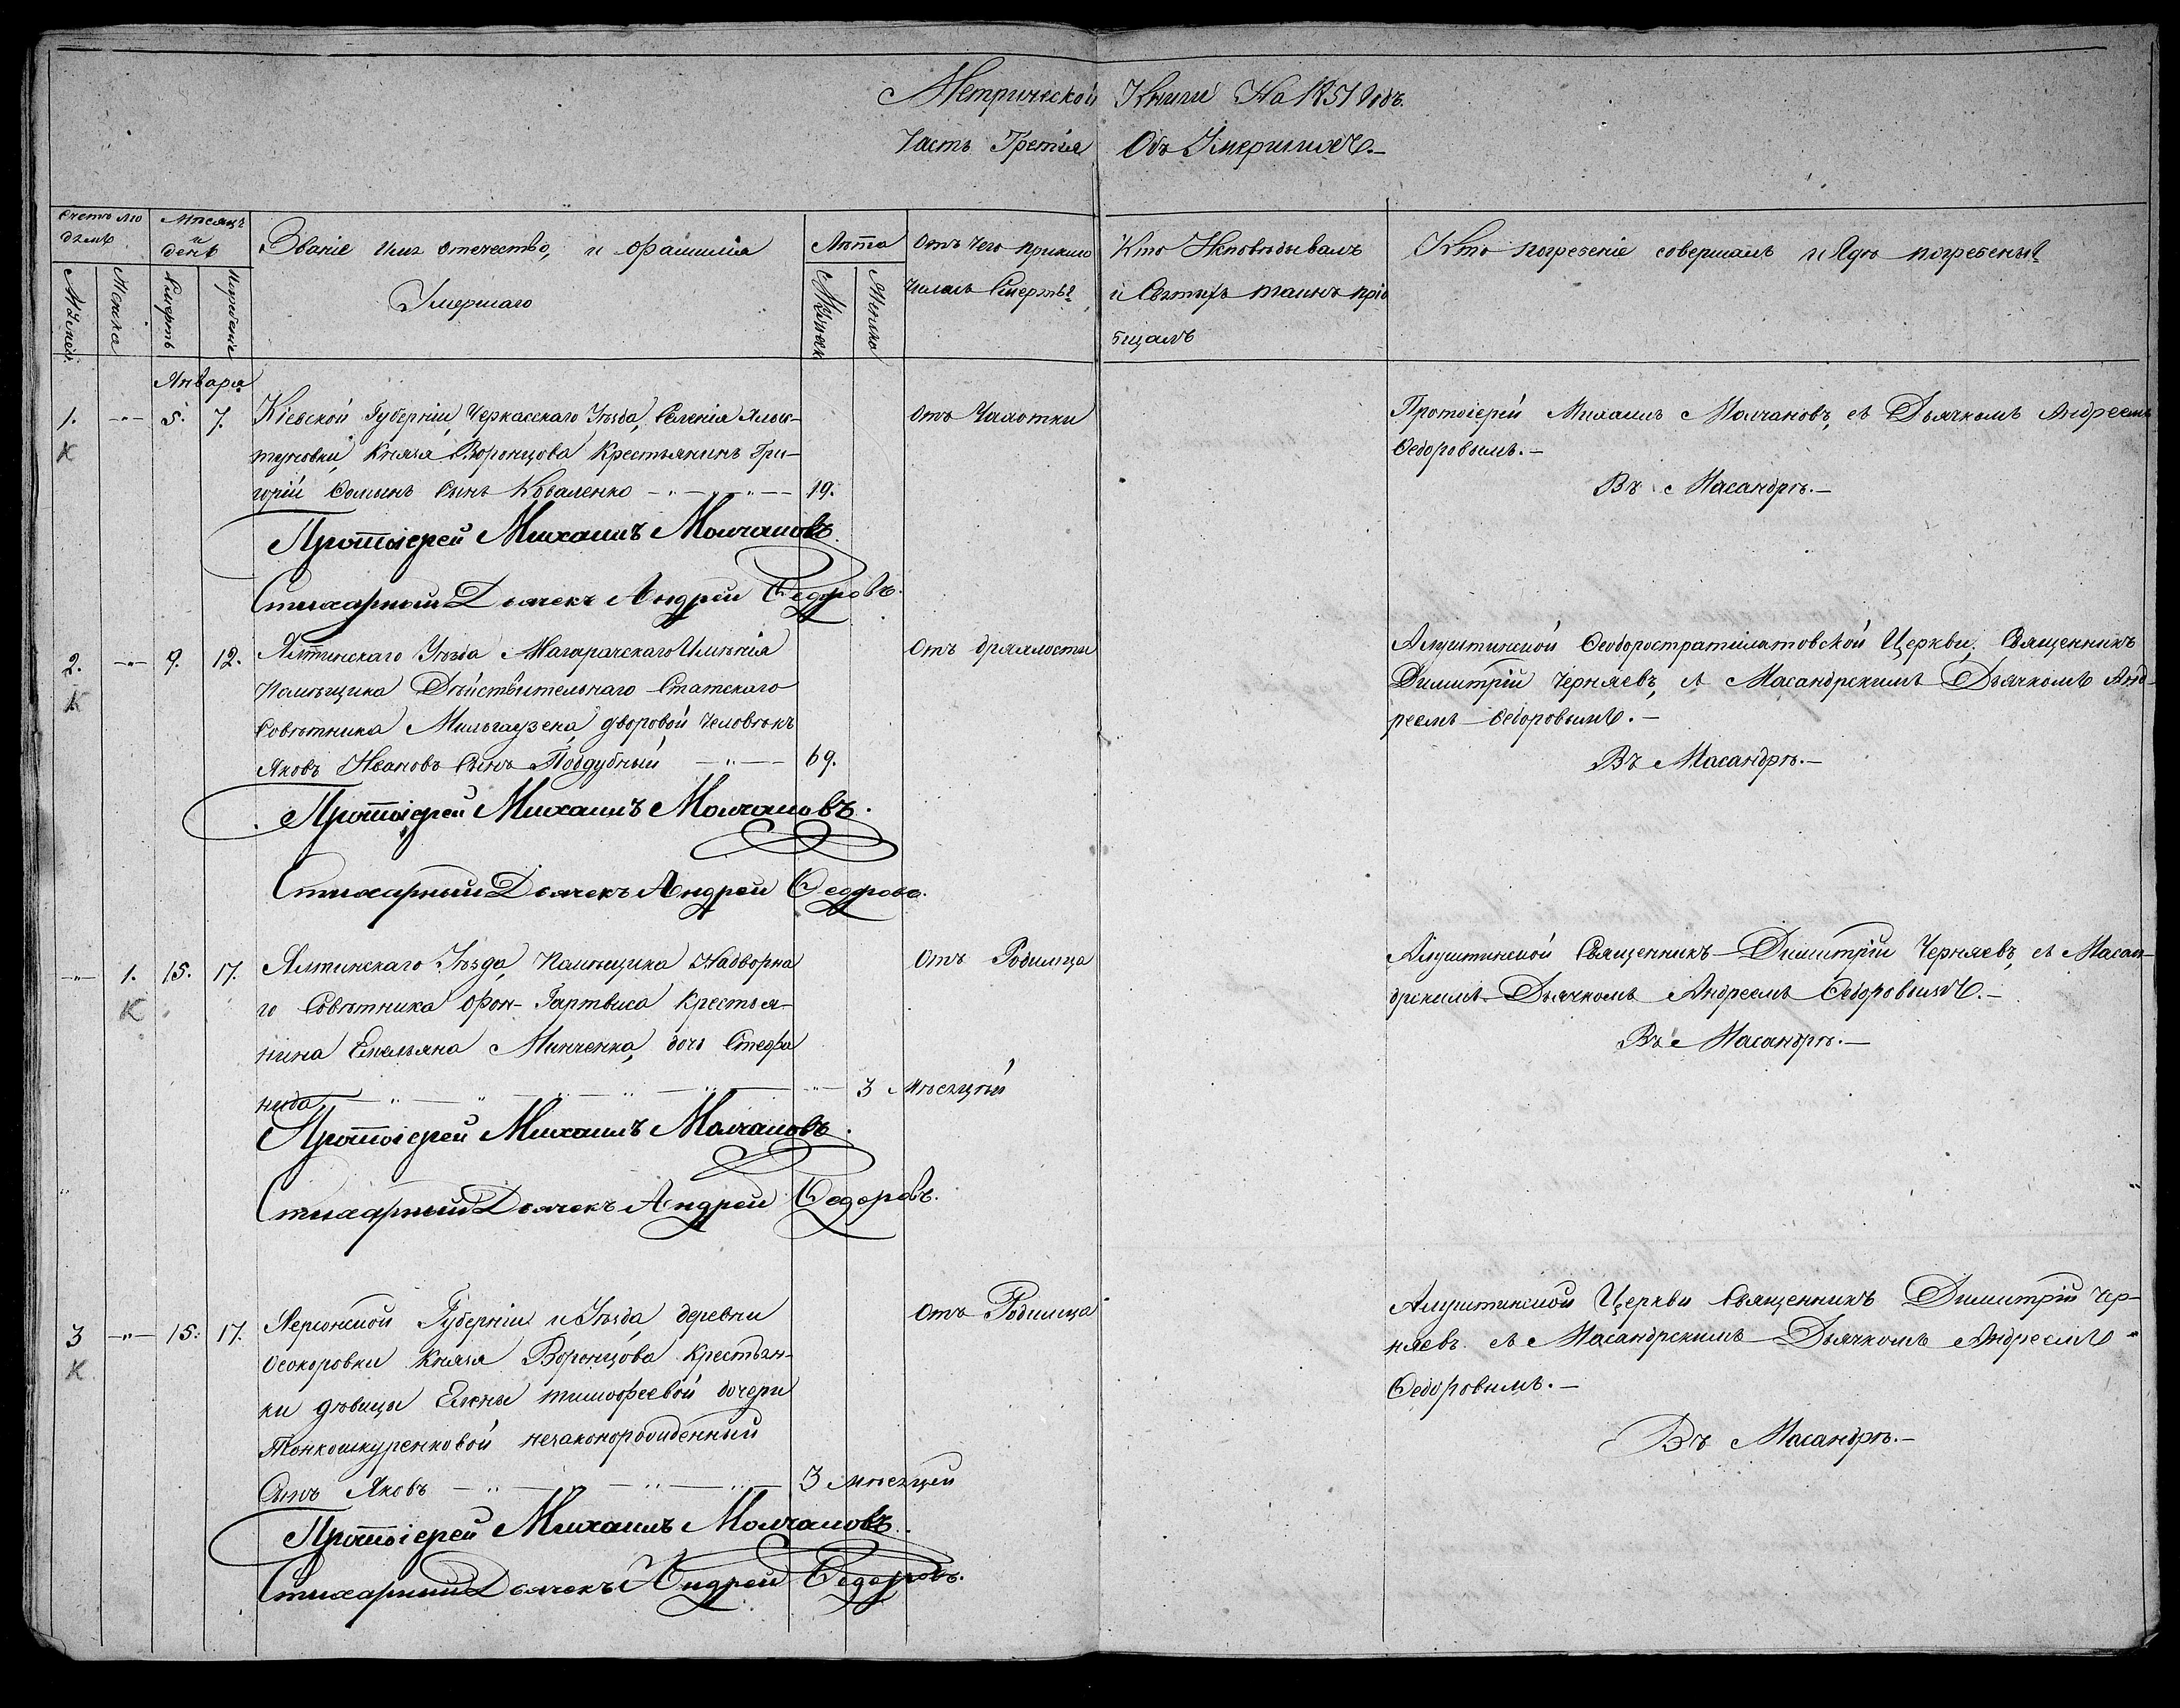 Метрической Книги На 1851 Годъ.
Часть Третія Объ Умершихъ.–
Счетъ лю
дямъ
Мѣсяцъ
и
день
Званіе имя отечество, и фамилія
Умершаго
Лѣта
Отъ чего приклю
чилась Смерть?
Кто Исповѣдывалъ
и Святыхъ таинъ пріо
бщалъ
Кто погребеніе совершалъ и гдѣ погребены?
Мужеск.
Женска
Смерть
Погребеніе
Мужеск
Женска
Января
1. –"– 5. 7. Кіевской Губерніи, Черкасскаго Уѣзда, Селенія
К
туновки, Князя Воронцова Крестьянинъ Гри–
горій Фоминъ Сынъ Коваленко –"–"–"– 19.
Отъ Чахотки
Протоіерей Михаилъ Молчановъ, съ Дьячкомъ Андреемъ
Федоровымъ.–
Въ Масандрѣ.–
Протоіерей Михаилъ Молчановъ.
Стихарный Дьячекъ Андрей Федоровъ.
2. –"– 9. 12. Ялтинскаго Уѣзда Магарачскаго Имѣнія
К
Помѣщика Дѣйствительнаго Статскаго
Совѣтника Мильгаузена, дворовой человѣкъ
Яковъ Ивановъ Сынъ Поддубный –"– 69.
Отъ дряхлости
Алуштинской Феодоростратилатовской Церкви, Священникъ
Димитрій Черняевъ, съ Масандрскимъ Дьячкомъ Анд–
реемъ Федоровымъ.–
Въ Масандрѣ.–
Протоіерей Михаилъ Молчановъ.
Стихарный Дьячекъ Андрей Федоровъ.
–"– 1. 15. 17. Ялтинскаго Уѣзда, Помѣщика Надворна
К
го Совѣтника фон–Гартвиса Крестья–
нина Емельяна Минченка, дочь Стефа
нида –"–"–"–"– 3 Мѣсяцый
Отъ Родимца
Алуштинской Священникъ Димитрій Черняевъ, съ Масан–
дрскимъ Дьячкомъ Андреемъ Федоровымъ.–
Въ Масандрѣ.–
Протоіерей Михаилъ Молчановъ.
Стихарный Дьячекъ Андрей Федоровъ.
3 –"– 15. 17. Херсонской Губерніи и Уѣзда, деревни
К
Осокоровки Князя Воронцова Крестьян–
ки дѣвицы Елены тимофеевой дочери
Тонкошкуренковой незаконорожденный
Сынъ Яковъ –"–"–"– 3 мѣсяцей
Отъ Родимца
Алуштинской Церкви Священникъ Димитрій Чер–
няевъ съ Масандрскимъ Дьячкомъ Андреемъ
Федоровымъ.–
Въ Масандрѣ.–
Протоіерей Михаилъ Молчановъ.
Стихарный Дьячекъ Андрей Федоровъ.